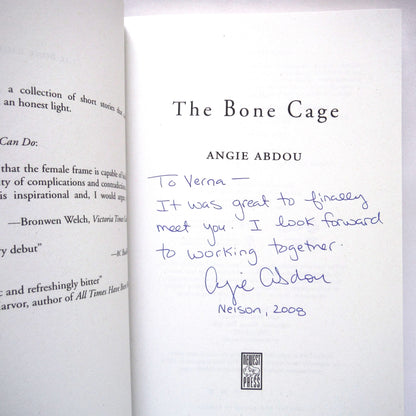 a collection of short stories that
an honest light.
Can Do:
that the female frame is capable of
ty of complications and contradiction
is inspirational and, I would argue
—Bronwen Welch, Victoria Times
ry debut"
—BC
c and refreshingly bitter"
arvor, author of All Times Have Been
The Bone Cage
ANGIE ABDOU
To Verna —
It was great to finally
meet you. I look forward
to working together.
Angie Abdou
Nelson, 2008
NEWEST
PRESS